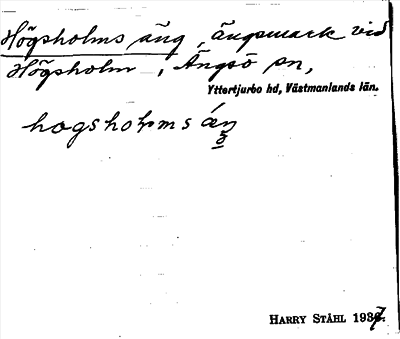 Högsholms äng, ängsmark vid
Högsholm, Ängsö sn,
Yttertjurbo hd, Västmanlands län.
hogshoḷms áŋ
HARRY STÅHL 1937.